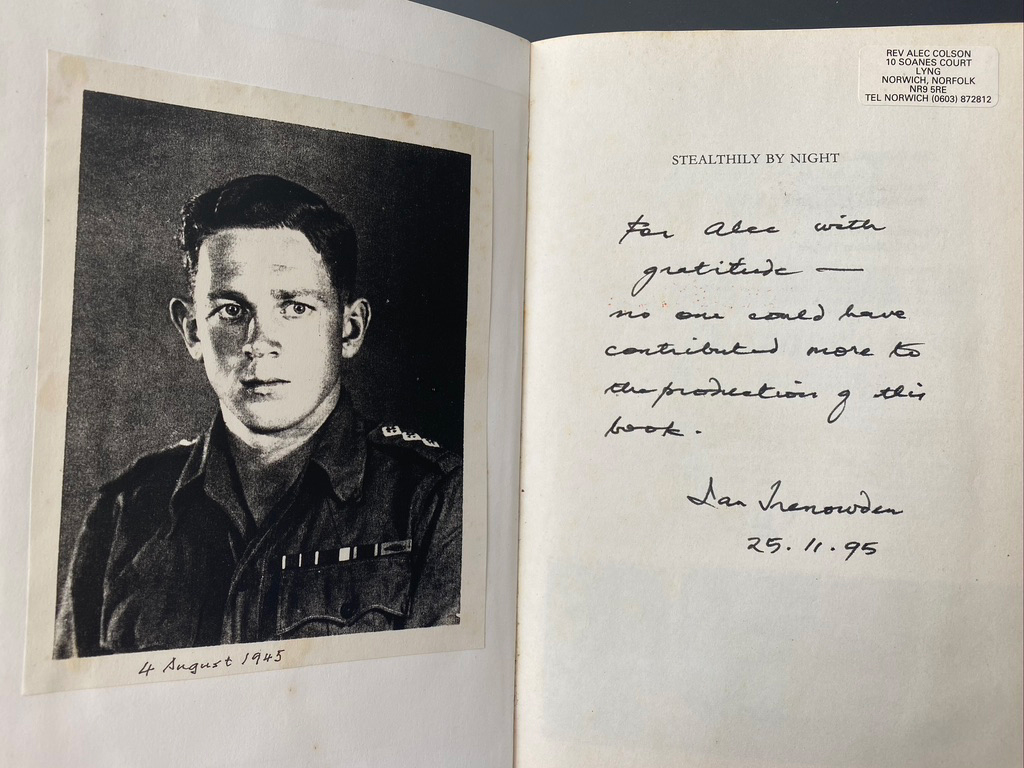 4 August 1945
REV ALEC COLSON
10 SOANES COURT
LYNG
NORWICH, NORFOLK
NR9 5RE
TEL NORWICH (0603) 872812
STEALTHILY BY NIGHT
For Alec with
gratitude —
no one could have
contributed more to
the production of this
book.
Ian Trenowden
25.11.95